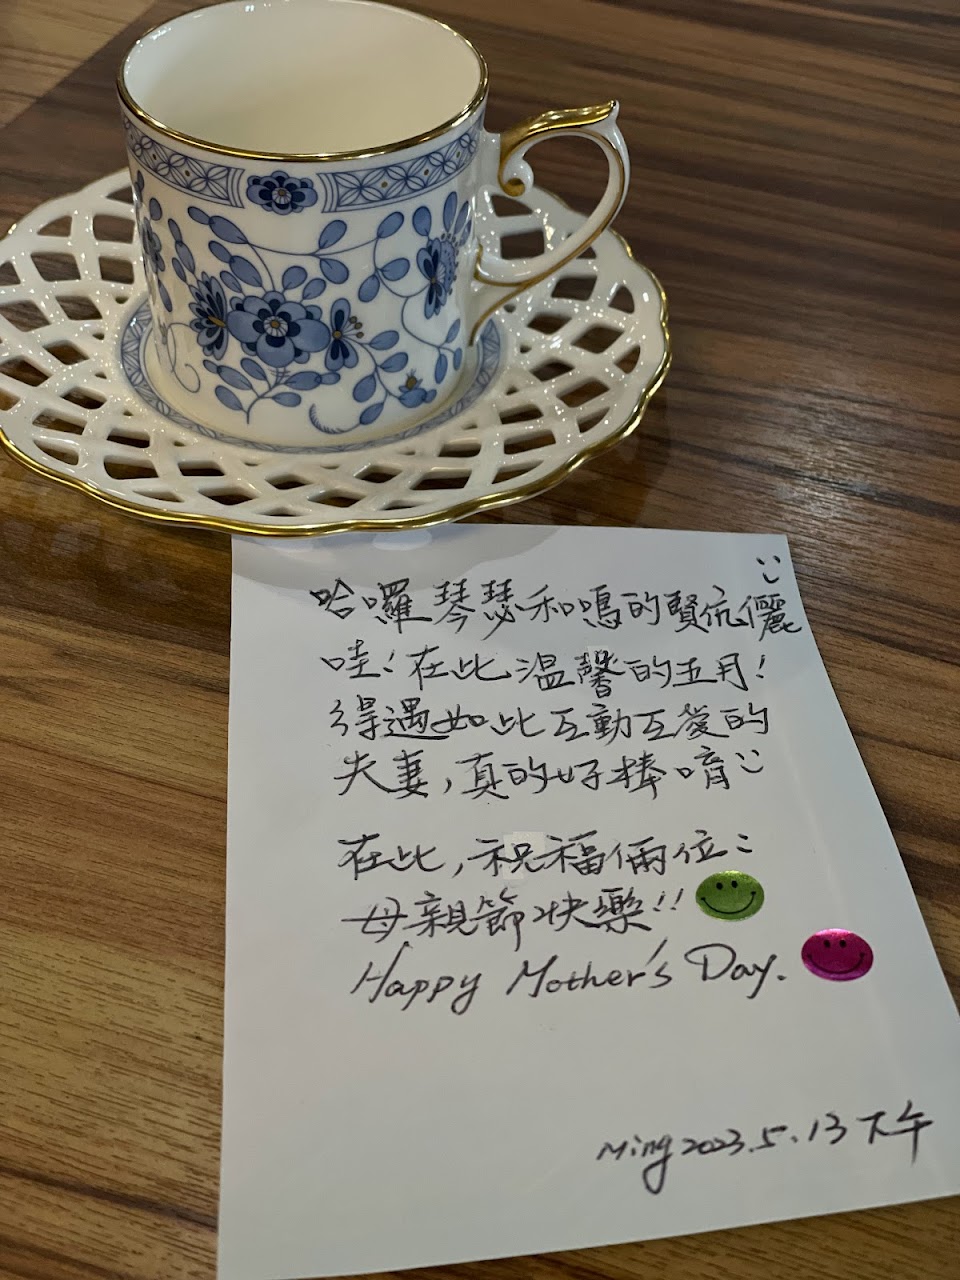 哈囉琴瑟和鳴的賢伉儷
哇!在此溫馨的五月!
得遇如此互動互愛的
夫妻,真的好棒唷
在此,祝福倆位:
母親節快樂!!
Happy Mother's Day.
Ming 2023.5.13 下午